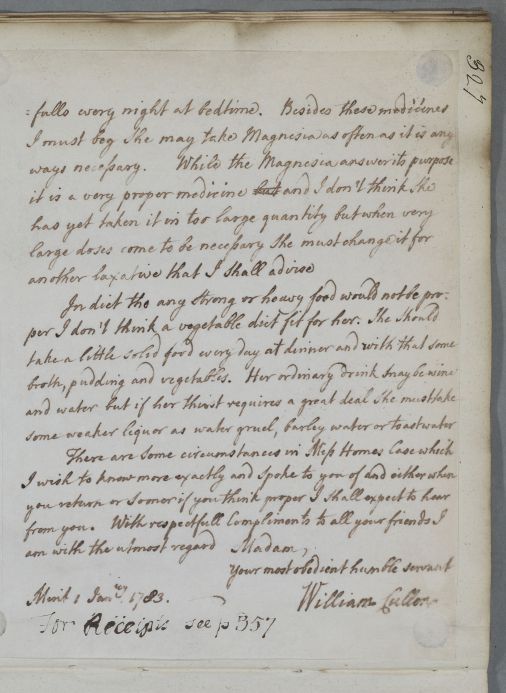 327
=fulls every night at bedtime. Besides these medicines
I must beg she may take Magnesia as often as it is any
ways necessary. While the Magnesia answer its purpose
it is a very proper medicine but and I don't think She
has yet taken it in too large quantity but when very
large doses come to be necessary She must change it for
another laxative that I shall advise
In diet tho any strong or heavy food would not be pro-
per I don't think a vegetable diet fit for her. She should
take a little solid food every day at dinner and with that some
broth, pudding and vegetables. Her ordinary Drink may be wine
and water but if her thirst requires a great deal She must take
some weaker liquor as water gruel, barley water or toast water
There are some circumstances in Miss Homes Case which
I wish to know more exactly and spoke to you of and either when
you return or sooner if you think proper I shall expect to hear
from you. With respectfull Compliments to all your friends I
am with the utmost regard Madam,
Your most obedient humble servant
Mint 1 Janry. 1783. William Cullen
For Receipts see p 357